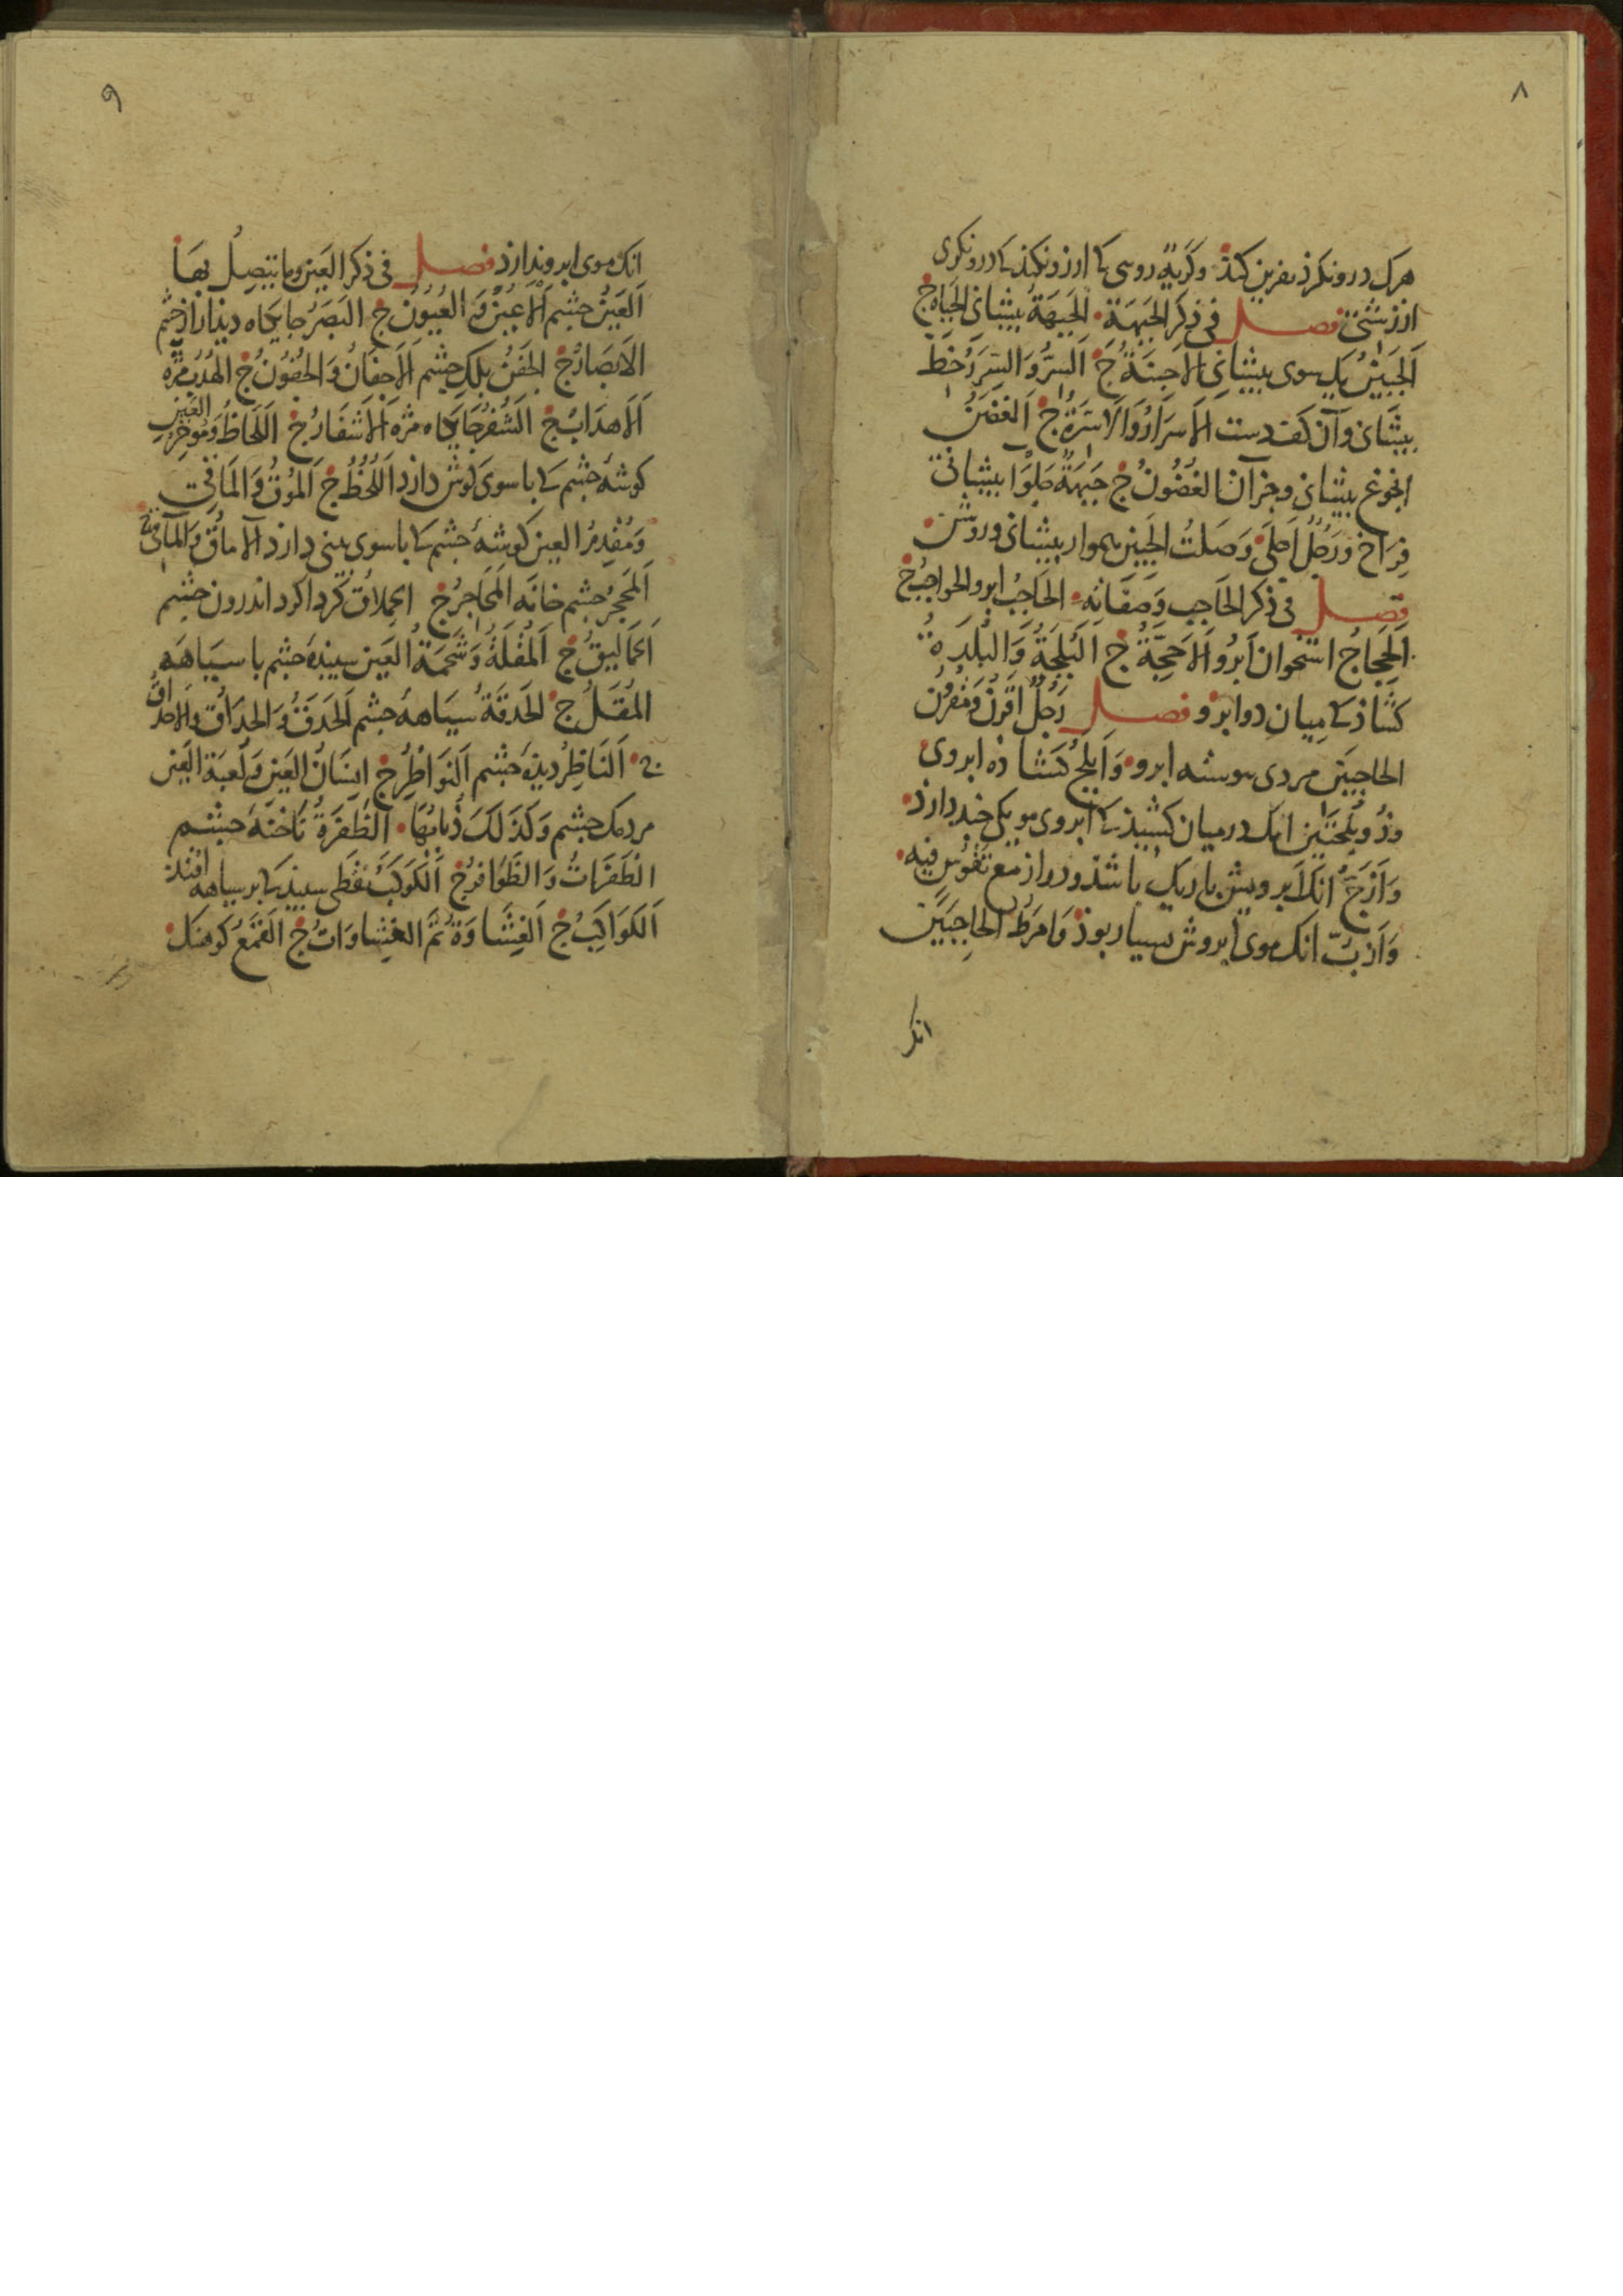 ۸
هرک درو نکرذ نفرین کنذ وکریهٍ روسی کی ارزو نکنذ کی درو نکری
ازز شتی فصل فی ذکر الجبهة الجَبهَةُ بیشانی الجباه ج
اَلجَبینُ یک سوی بیشانی الاَجِبنَةُ ج اَلسِّرُّ وَالسَّرَرُ خط
بیشانی وآن کف دست الاَسرَارُ وَالاَسِرَّةُ ج اَلغَضَنُ
انجوغ بیشانی وجزآن الغُضُونُ ج جَبهَةٌ جَلوَا بیشانی
فراخ وَرَجُلٌ اَجلَی وَصَلتُ الجَبین هموار بیشانی وروشن
فصل فی ذکر الحَاجِب وَصِفَاتِهِ الحَاجِبُ ابرو الحواجِبُ ج
اَلحَجَاجُ استخوان اَبرُو اَلاَحِجَّةُ ج البُلجَةُ وَالبُلدَةُ
کشاذکی میان دو ابرو فصل رَجُلٌ اَقرَنُ وَمَقرُونُ
الحاجبَین مردی بیوسته ابرو وَاَبلَجُ کشاذه ابروی
وذُو بُلجَتَین انک درمیان کشیذکی ابروی مویکی جند دارذ
وَاَزَجُّ انک ابرویش باریک باشذ ودراز مع تَقَوُّسٍ فیه
وَاَزَبُّ انک موی ابروش بسیار بوذ وَاَمرَطُ الحاجِبَین
انک
۹
انک موی ابرو ندارذ فصل فی ذکر العَین وما یتصِلُ بها
اَلعَینُ جشم اَلاَعیُنُ وَ العُیُونُ ج البَصَرُ جایکاه دیذار از جشم
الاَبصَارُ ج الجَفنُ بلک جشم الاَجفَانُ وَالجُفُونُ ج الهُدبُ مژه
اَلاَهدَابُ ج الشُفرُ جایکاه مژه اَلاَشفَارُ ج اَللَّحَاظُ وَمُوخِرُ العَین
کوشهٔ جشم کی باسوی کوش دارد اَللُّحُظُ ج اَلمُوقُ وَالمَاقِی
وَمُقدِمُ العین کوشهٔ جشم کی باسوی بینی دارد الآماقُ وَالمآقِی ج
اَلمَحجِرُ جشم خانَه المَحَاجِرُ ج الحِملَاقُ کرداکرد اندرون جشم
الحَمَالیقُ ج اَلمُقلَةُ وَشَحمَةُ العَین سبیذهٔ جشم با سیَاهَه
المُقَلُ ج الحَدَقَةُ سیَاههٔ جشم الحَدَقُ وَالحِدَاقُ وَالاَحدَاقُ
ج اَلنَاظِرُ دیذهٔ جشم اَلنَوَاظِرُ ج اِنسَانُ العَین وَلُعبَةُ العَین
مردمک جشم وَکَذَلِکَ ذُبَابُهَا الظَفَرَةُ نَاخنَهٔ جشم
الظَفَرَاتُ وَالظَوَافِرُ ج اَلکَوکَبُ نقطی سبیذ کی بر سیاهه افتذ
اَلکَوَاکِبُ ج اَلغِشَاوَةُ ثَمَّ الغِشَاوَاتُ ج القَمَعُ کوهنک